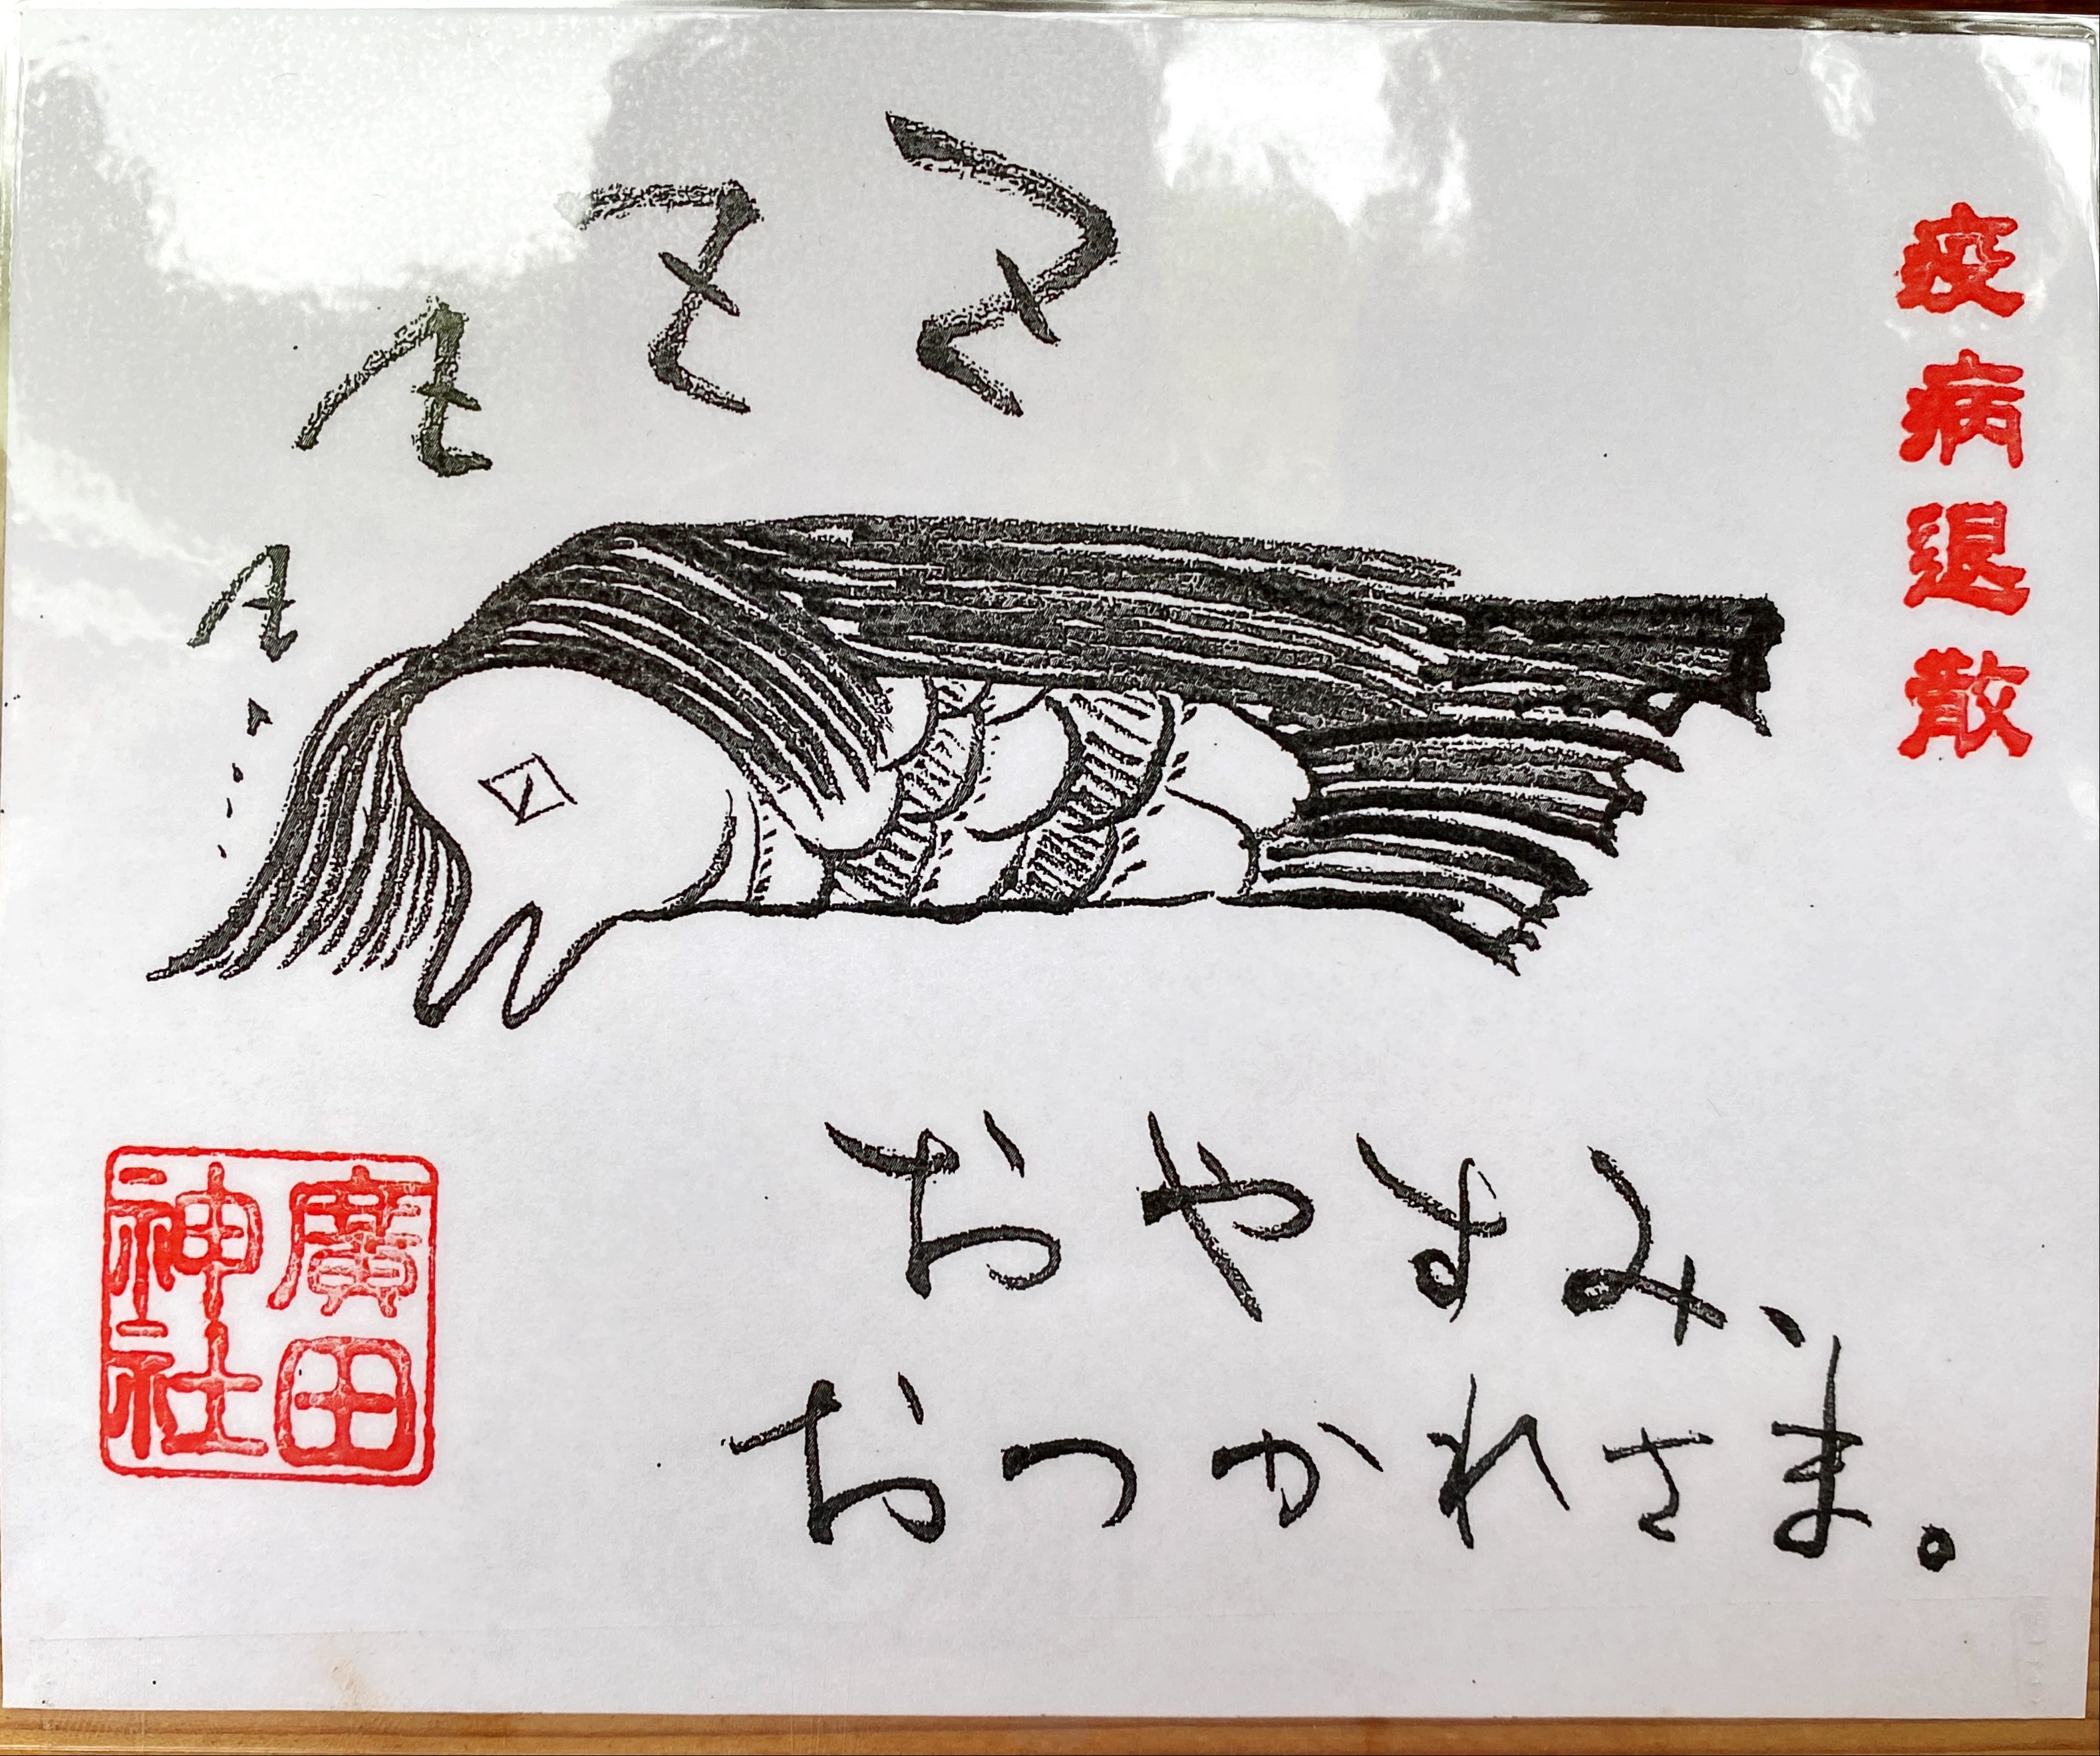 疫病退散
Z Z Z Z
おやすみ、
おつかれさま。
廣田
神社